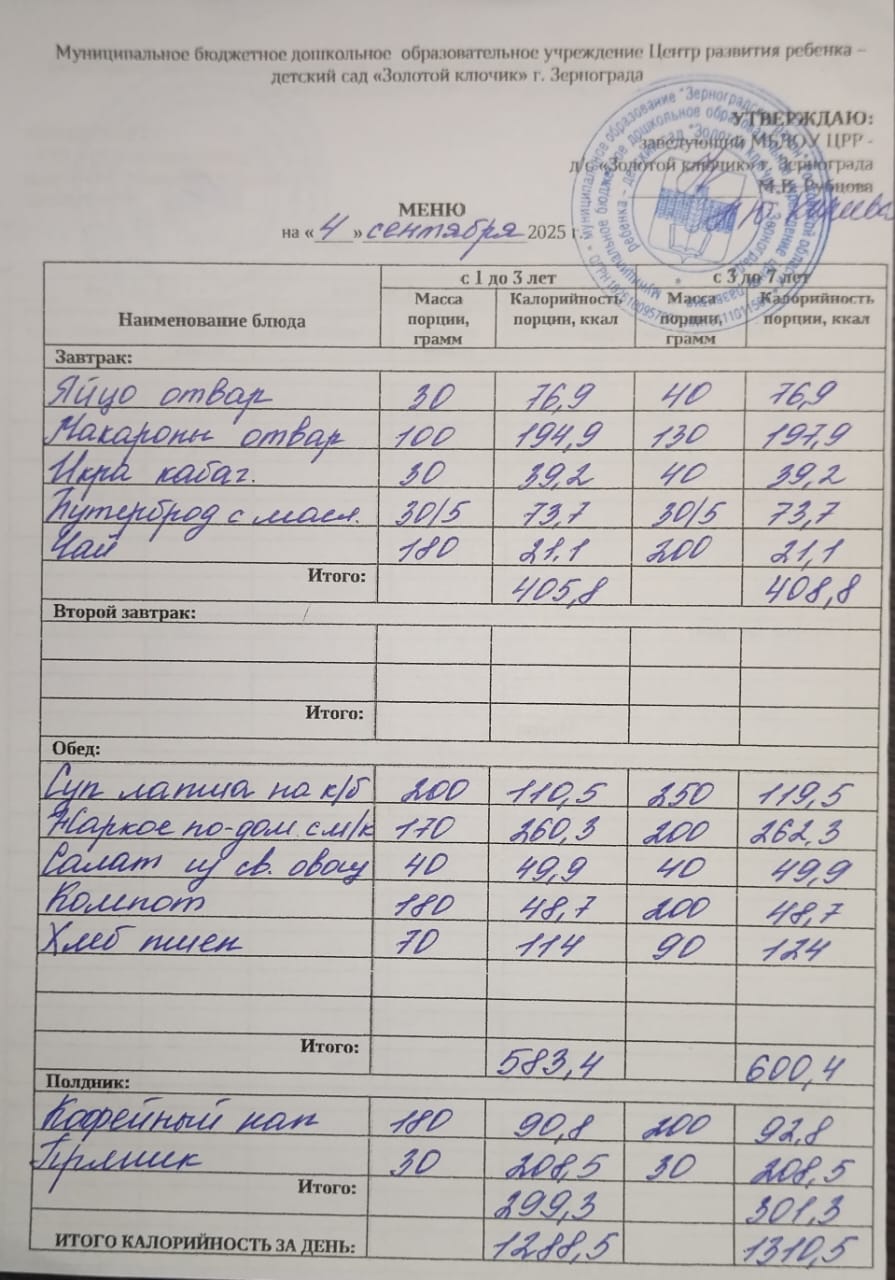 Муниципальное бюджетное дошкольное образовательное учреждение Центр развития ребенка –
детский сад «Золотой ключик» г. Зернограда
УТВЕРЖДАЮ:
заведующий МБДОУ ЦРР -
д/с «Золотой ключик» г. Зернограда
М.В. Рубцова
МЕНЮ
на «4» сентября 2025 г.
Наименование блюда с 1 до 3 лет с 3 до 7 лет
Масса порции, грамм Калорийность порции, ккал Масса порции, грамм Калорийность порции, ккал
Завтрак:
Яйцо отвар 30 76,9 40 76,9
Макароны отвар 100 194,9 130 197,9
Икра кабач. 30 39,2 40 39,2
Бутерброд с масл. 30/5 73,7 30/5 73,7
Чай 180 21.1 200 21,1
Итого: 405,8 408,8
Второй завтрак:
Итого:
Обед:
Суп лапша на к/б 200 110,5 250 119,5
Жаркое по-дом. с м/к 170 260,3 200 262,3
Салат из св. овощ 40 49,9 40 49,9
Компот 180 48,7 200 48,7
Хлеб пшен 70 114 90 124
Итого: 583,4 600,4
Полдник:
Кофейный нап 180 90,8 200 92,8
Пряник 30 208,5 30 208,5
Итого: 299,3 301,3
ИТОГО КАЛОРИЙНОСТЬ ЗА ДЕНЬ: 1288,5 1310,5